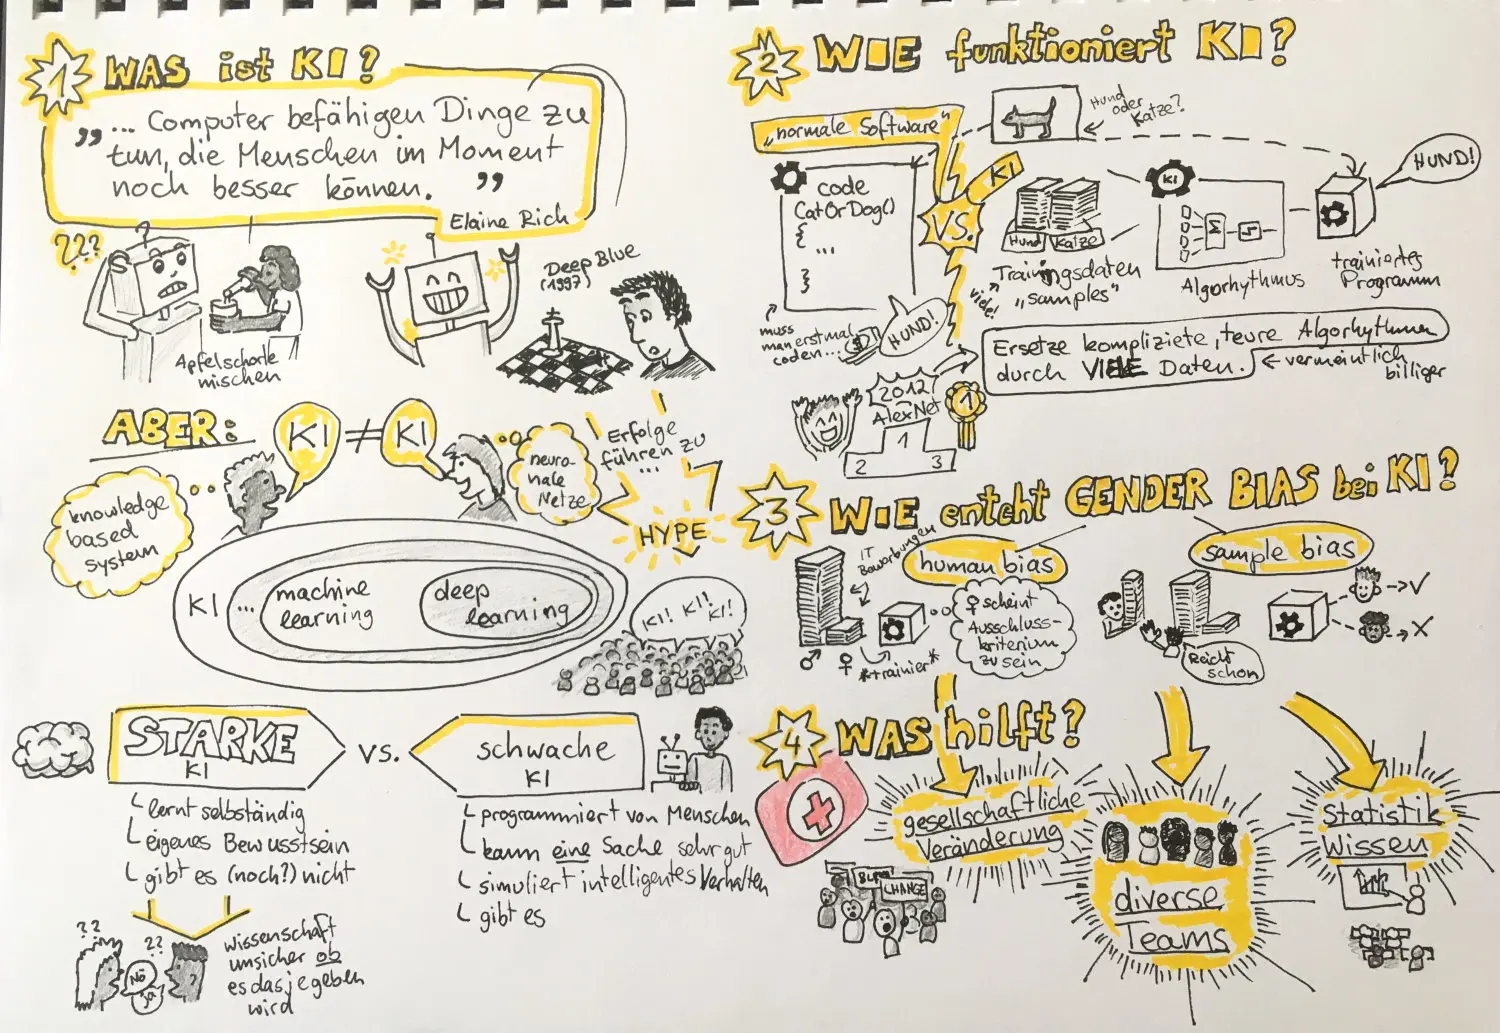 1 WAS ist KI?
„... Computer befähigen Dinge zu
tun, die Menschen im Moment
noch besser können."
Elaine Rich
???
?
Apfelschorle
mischen
Deep Blue
(1997)
ABER:
KI ≠ KI
knowledge
based
system
neuro-
nale
Netze
Erfolge
führen zu
...
HYPE
KI ...
machine
learning
deep
learning
KI! KI!
KI!
STARKE
KI
vs.
schwache
KI
lernt selbständig
eigenes Bewusstsein
gibt es (noch?) nicht
programmiert von Menschen
kann eine Sache sehr gut
simuliert intelligentes Verhalten
gibt es
??
??
Nö
Ja
Wissenschaft
unsicher ob
es das je geben
wird
2 WIE funktioniert KI?
„normale Software"
Hund
oder
Katze?
VS.
KI
code
CatOrDog()
{
...
}
muss
man erstmal
coden...
HUND!
Hund
Katze
Trainingsdaten
„samples"
viele!
KI
Σ
Algorhythmus
trainiertes
Programm
HUND!
Ersetze komplizierte, teure Algorhythmen
durch VIELE Daten.
vermeintlich
billiger
2012
AlexNet
1
1
2
3
3 WIE entsteht GENDER BIAS bei KI?
IT
Bewerbungen
human bias
♂
♀
*trainier*
♀ scheint
Ausschluss-
kriterium
zu sein
sample bias
Reicht
schon
✓
X
4 WAS hilft?
gesellschaftliche
Veränderung
CHANGE
diverse
Teams
Statistik
Wissen